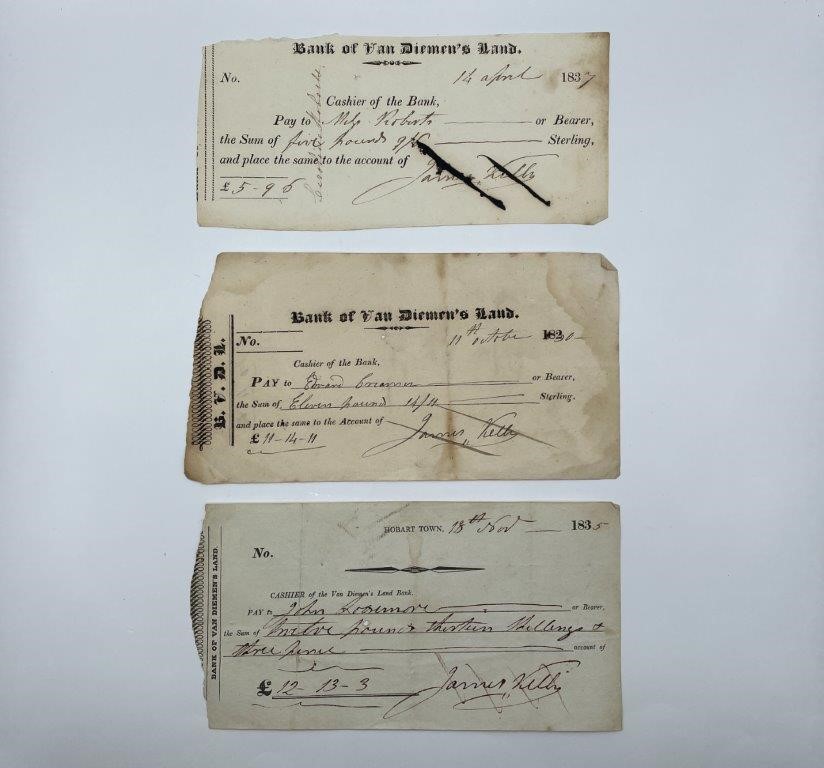 Bank of Van Diemen's Land.
No. 14 April 1837
Cashier of the Bank,
Pay to Roberts or Bearer,
the Sum of five pounds 9/6 Sterling,
and place the same to the account of
£ 5-9 6 James Kelly
Bank of Van Diemen's Land.
No. 11th October 1830
B. V. D. L.
Cashier of the Bank,
PAY to Edward Creamer or Bearer,
the Sum of Eleven pounds 14/11 Sterling.
and place the same to the Account of
£ 11-14-11 James Kelly
HOBART TOWN, 13th Nov 1835
No.
BANK OF VAN DIEMEN'S LAND.
CASHIER of the Van Diemen's Land Bank.
PAY to John Loosemore or Bearer,
the Sum of twelve pounds thirteen Shillings &
three pence account of
£ 12-13-3 James Kelly